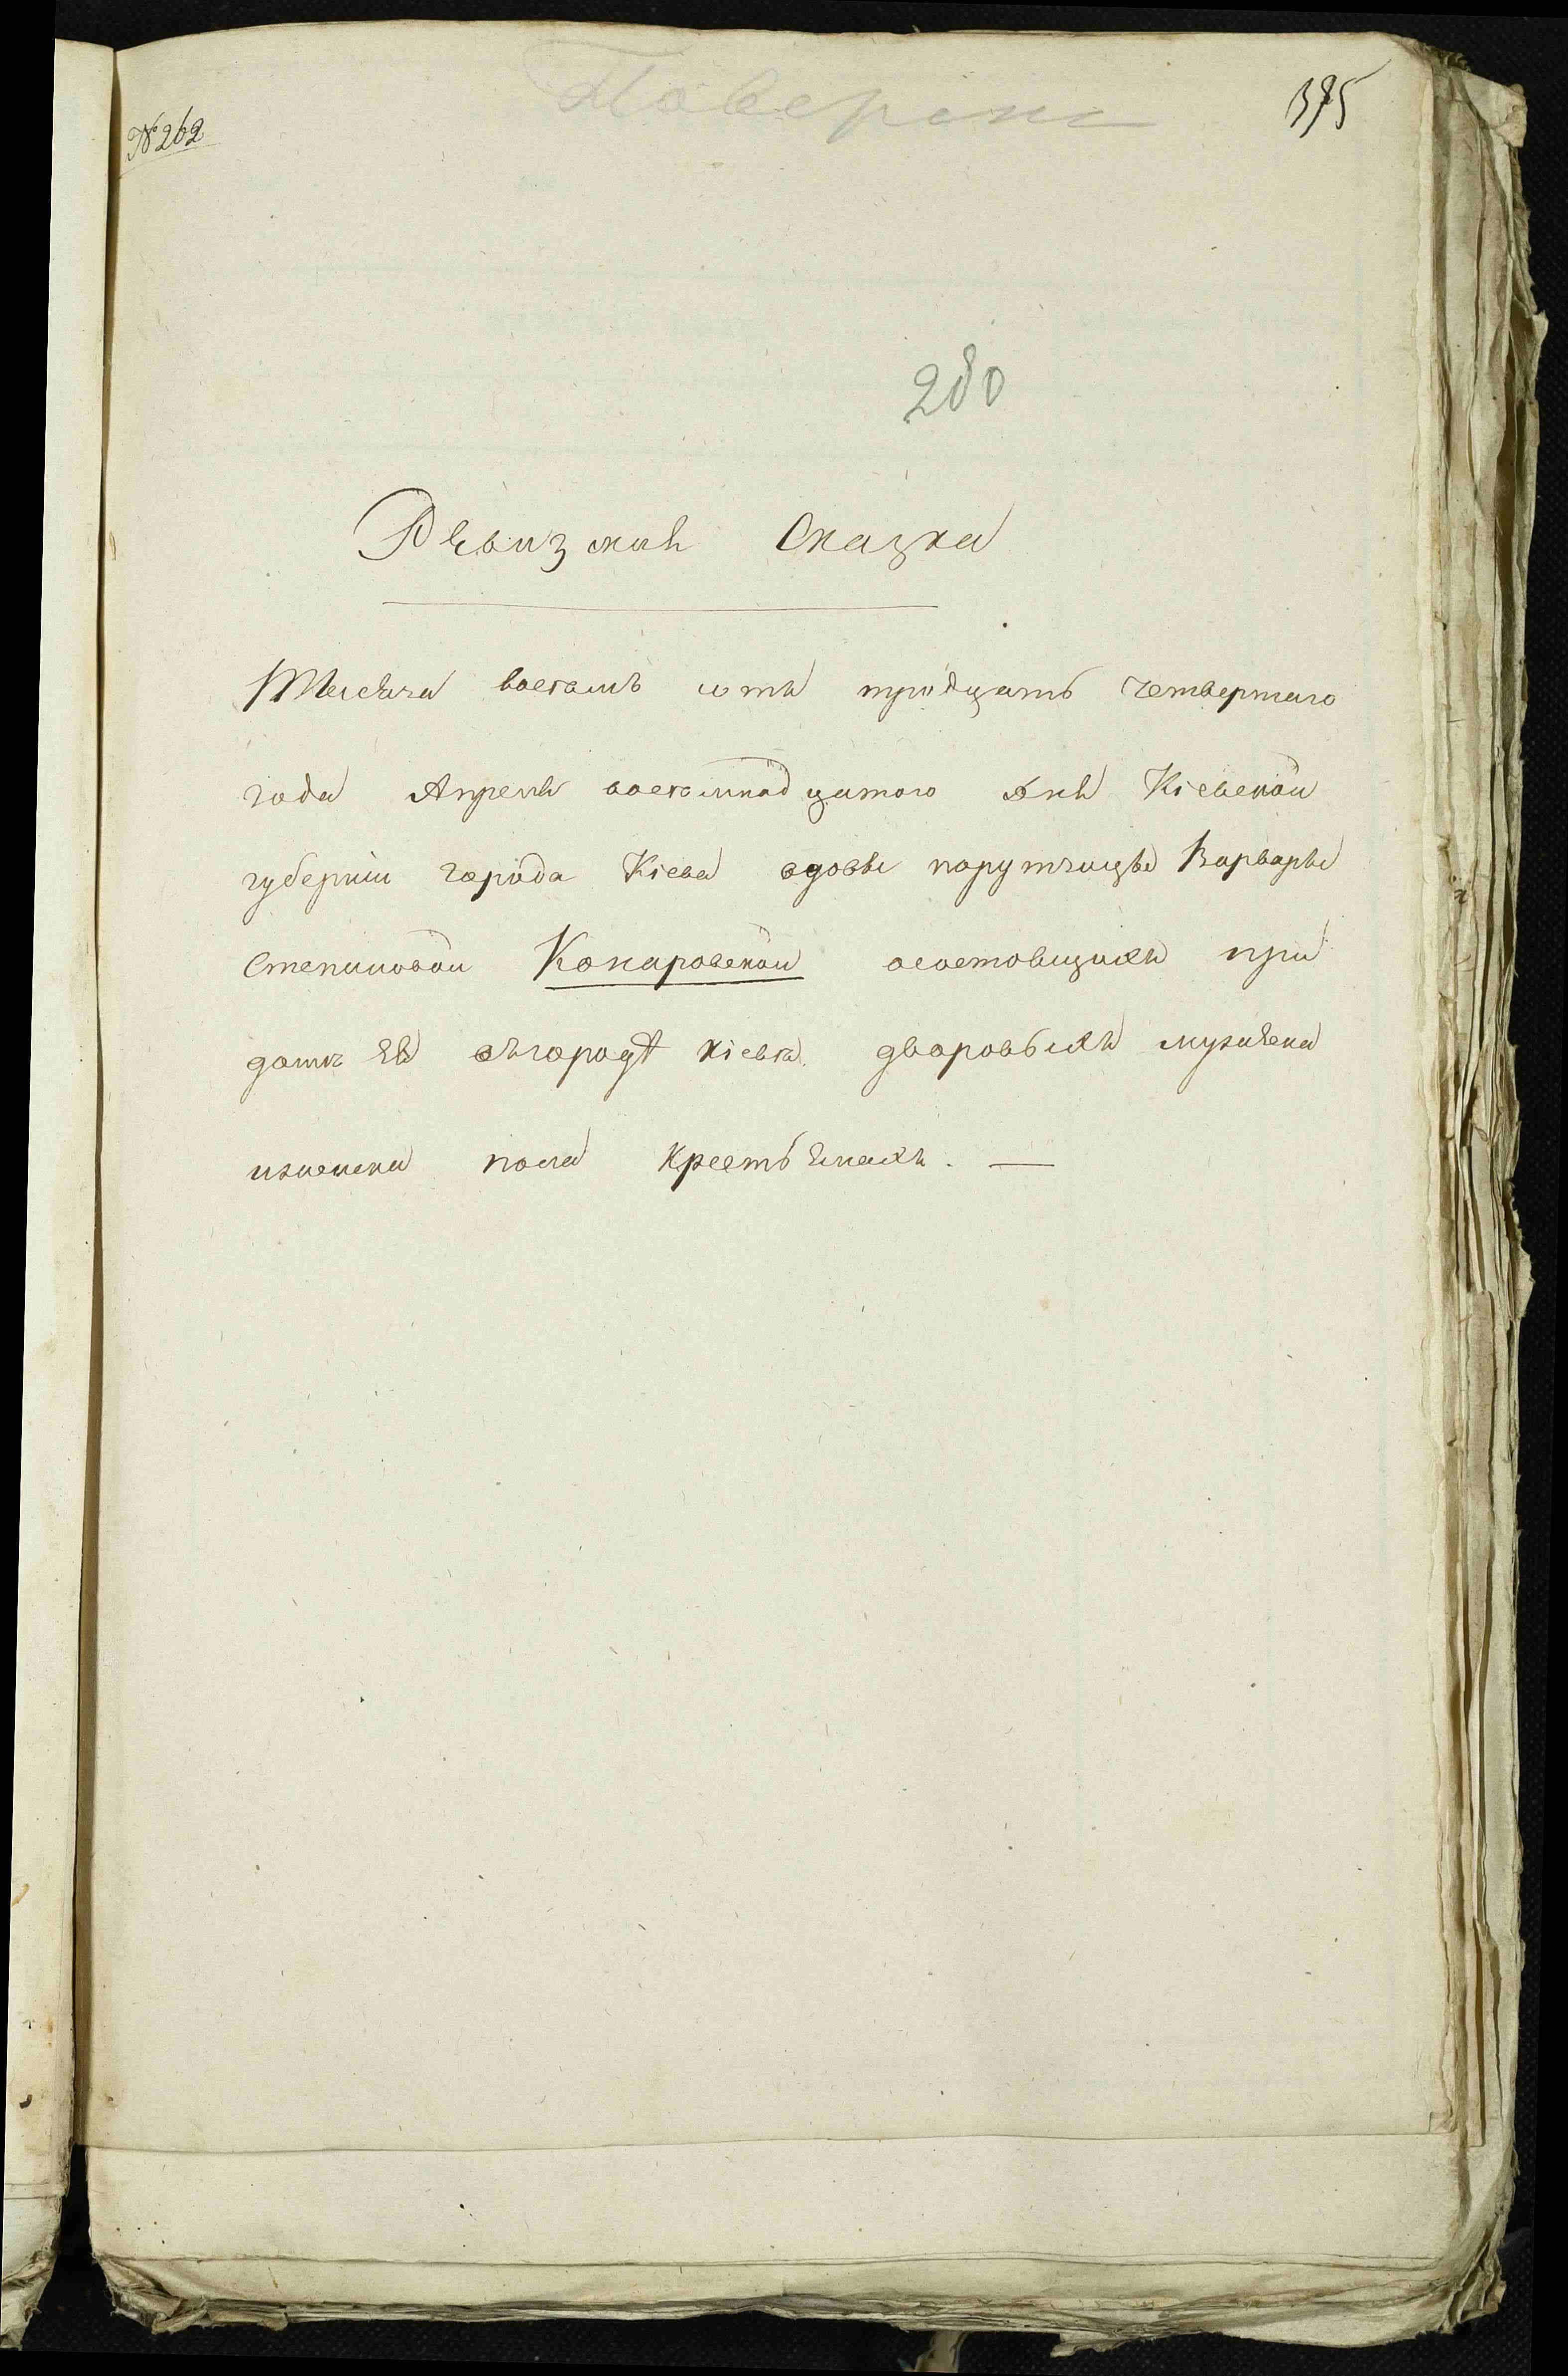 Поверено
375
№ 262
280
Ревизская Сказка
Тысяча восемь сотъ тридцать четвертаго
года Апреля восемнадцатого дня Кіевской
губерніи города Кіева вдовы порутчицы Варвары
Степановой Комаровской осостовщихъ при
доме ея въгородѣ Кіеве дворовыхъ мужеска
иженска пола Крестьянахъ. —